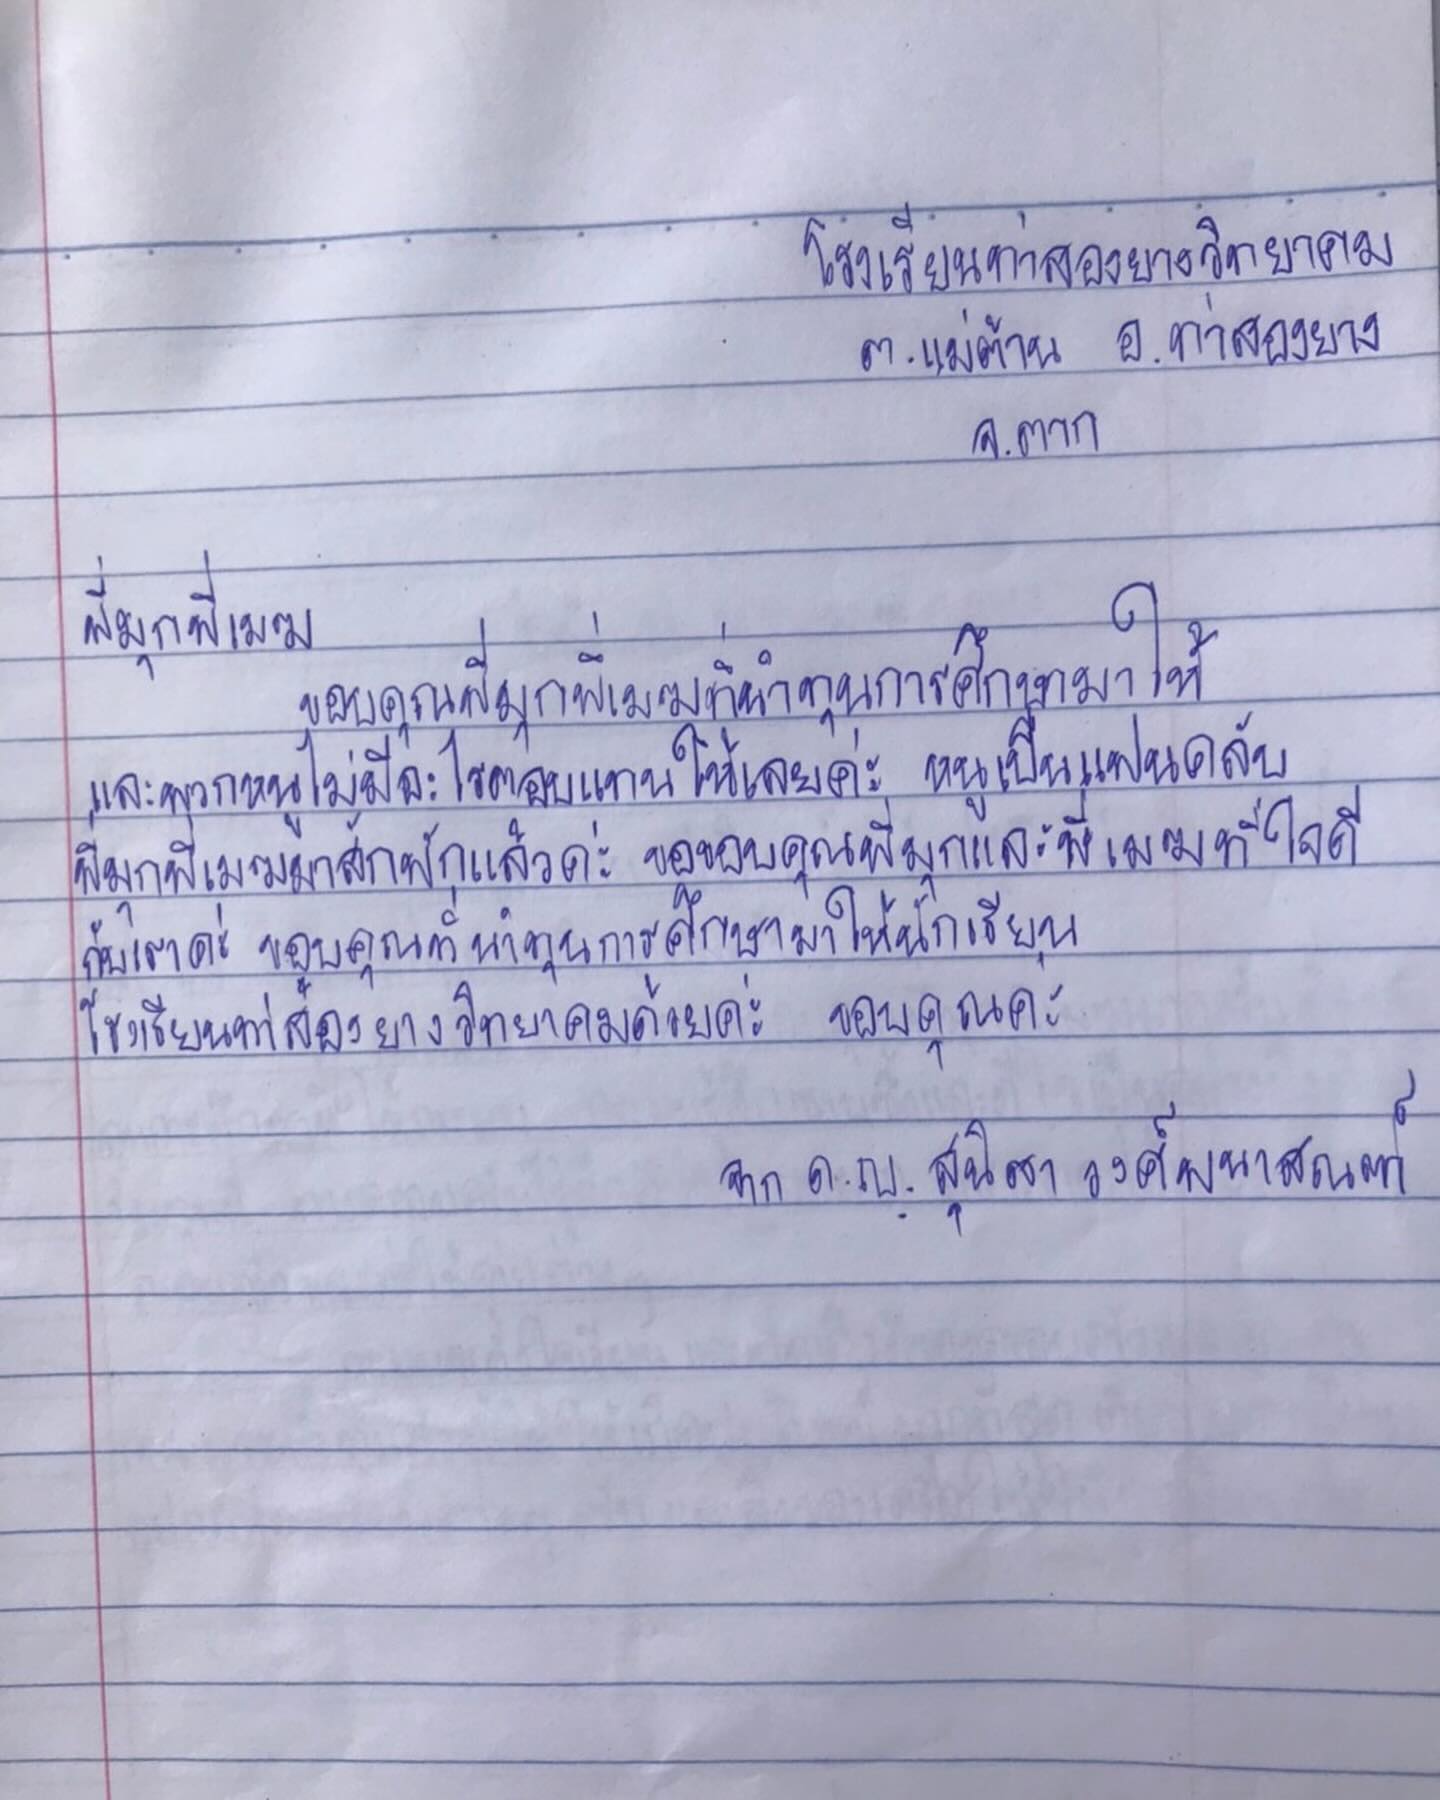 โรงเรียนท่าสองยางวิทยาคม
ต.แม่ต้าน อ.ท่าสองยาง
จ.ตาก
พี่มุกพี่เมฆ
ขอบคุณพี่มุกพี่เมฆที่นำทุนการศึกษามาให้
และพวกหนูไม่มีอะไรตอบแทนให้เลยค่ะ หนูเป็นแฟนคลับ
พี่มุกพี่เมฆมาสักพักแล้วค่ะ ขอขอบคุณพี่มุกและพี่เมฆที่ใจดี
กับเราค่ะ ขอบคุณที่นำทุนการศึกษามาให้นักเรียน
โรงเรียนท่าสองยางวิทยาคมด้วยค่ะ ขอบคุณคะ
จาก ด.ญ. สุนิสา วงศ์พนาสณฑ์